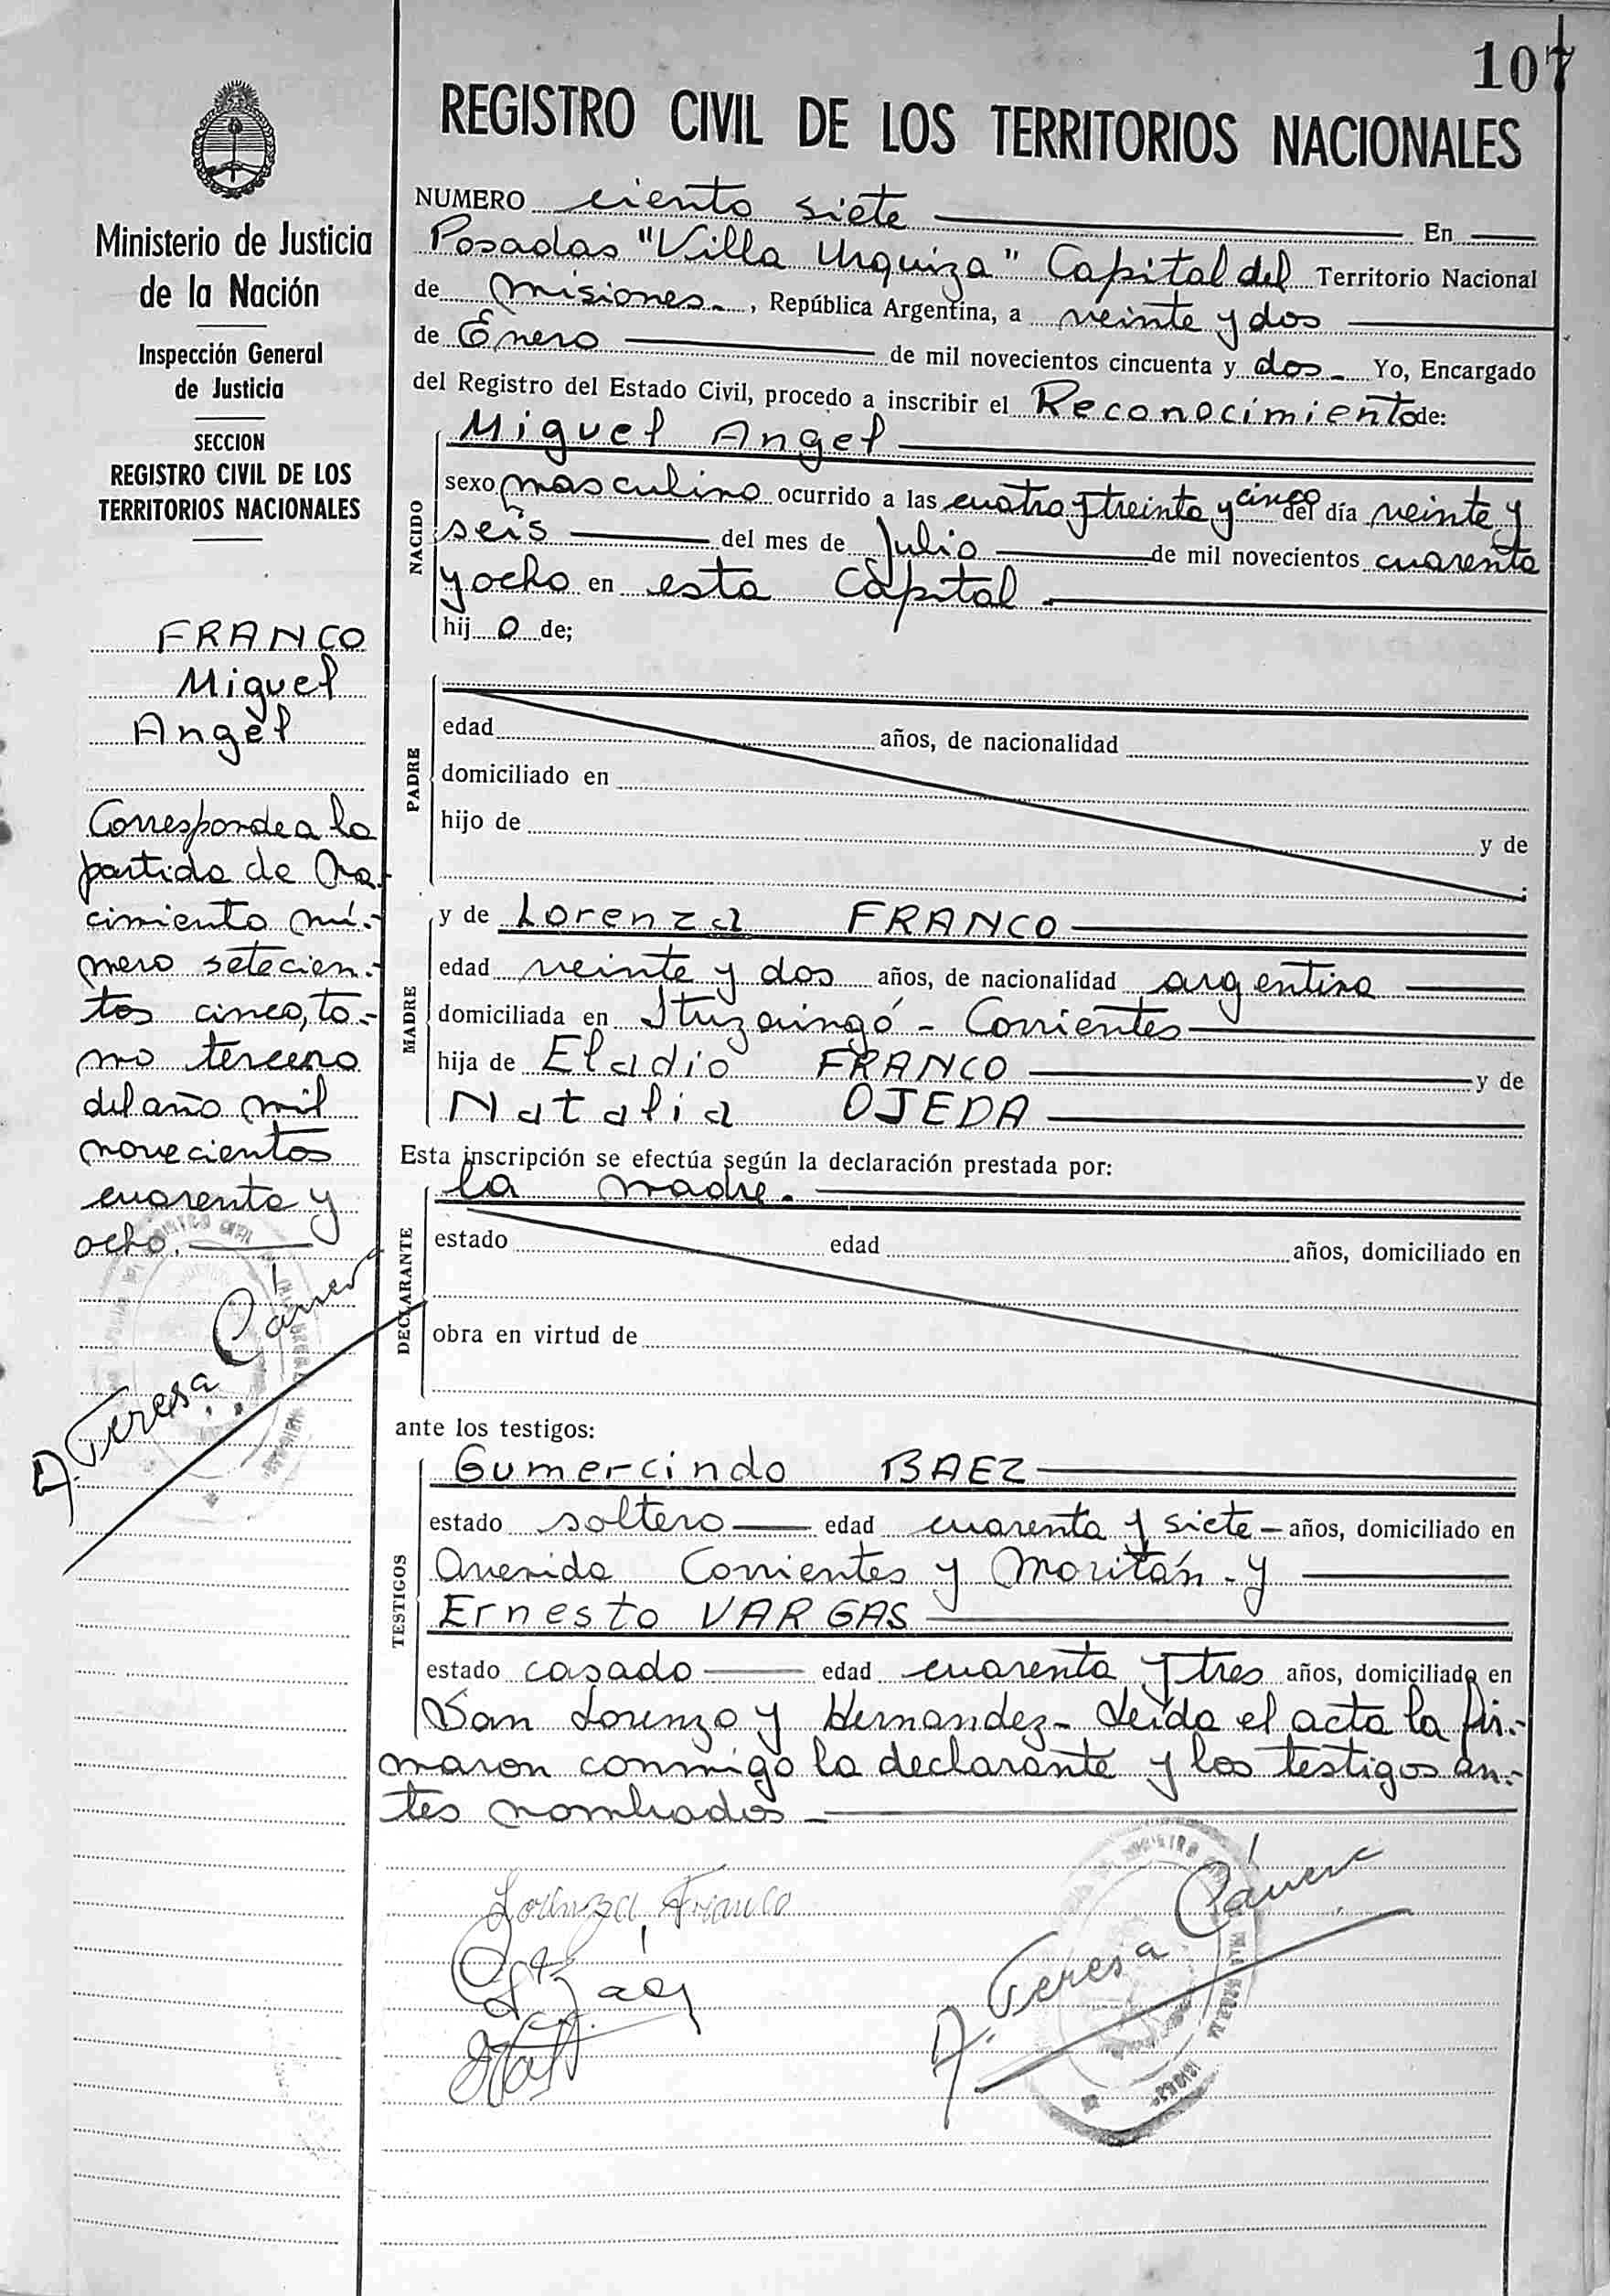 107
REGISTRO CIVIL DE LOS TERRITORIOS NACIONALES
Ministerio de Justicia
de la Nación
Inspección General
de Justicia
SECCION
REGISTRO CIVIL DE LOS
TERRITORIOS NACIONALES
FRANCO
Miguel
Angel
Corresponde a la
partida de Na-
cimiento nú-
mero setecien-
tos cinco, to-
mo tercero
del año mil
novecientos
cuarenta y
ocho.
A. Teresa
NUMERO ciento siete En
Posadas "Villa Urquiza" Capital del Territorio Nacional
de Misiones, República Argentina, a veinte y dos
de Enero de mil novecientos cincuenta y dos Yo, Encargado
del Registro del Estado Civil, procedo a inscribir el Reconocimiento de:
NACIDO
Miguel Angel
sexo masculino ocurrido a las cuatro y treinta y cinco del día veinte y
seis del mes de Julio de mil novecientos cuarenta
y ocho en esta Capital
hij o de;
PADRE
edad años, de nacionalidad
domiciliado en
hijo de y de
MADRE
y de Lorenza FRANCO
edad veinte y dos años, de nacionalidad argentina
domiciliada en Ituzaingó - Corrientes
hija de Eladio FRANCO y de
Natalia OJEDA
Esta inscripción se efectúa según la declaración prestada por:
la madre.
DECLARANTE
estado edad años, domiciliado en
obra en virtud de
ante los testigos:
TESTIGOS
Gumercindo BAEZ
estado soltero edad cuarenta y siete - años, domiciliado en
Avenida Corrientes y Moritán - y
Ernesto VARGAS
estado casado edad cuarenta y tres años, domiciliado en
San Lorenzo y Hernandez - Leída el acta la fir-
maron conmigo la declarante y los testigos an-
tes nombrados
Lorenza Franco
A. Teresa